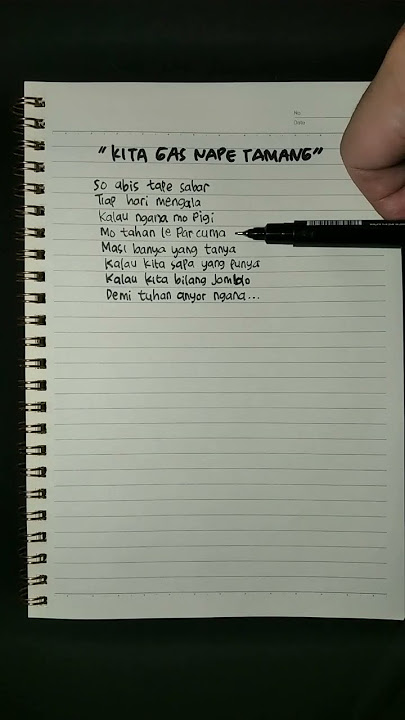 No
Date
"KITA GAS NAPE TAMANG"
So abis tape sabar
Tiap hari mengala
Kalau ngana mo Pigi
Mo tahan le Par cuma
Masi banya yang tanya
Kalau kita sapa yang punya
Kalau kita bilang Jomblo
Demi tuhan anyor ngana...